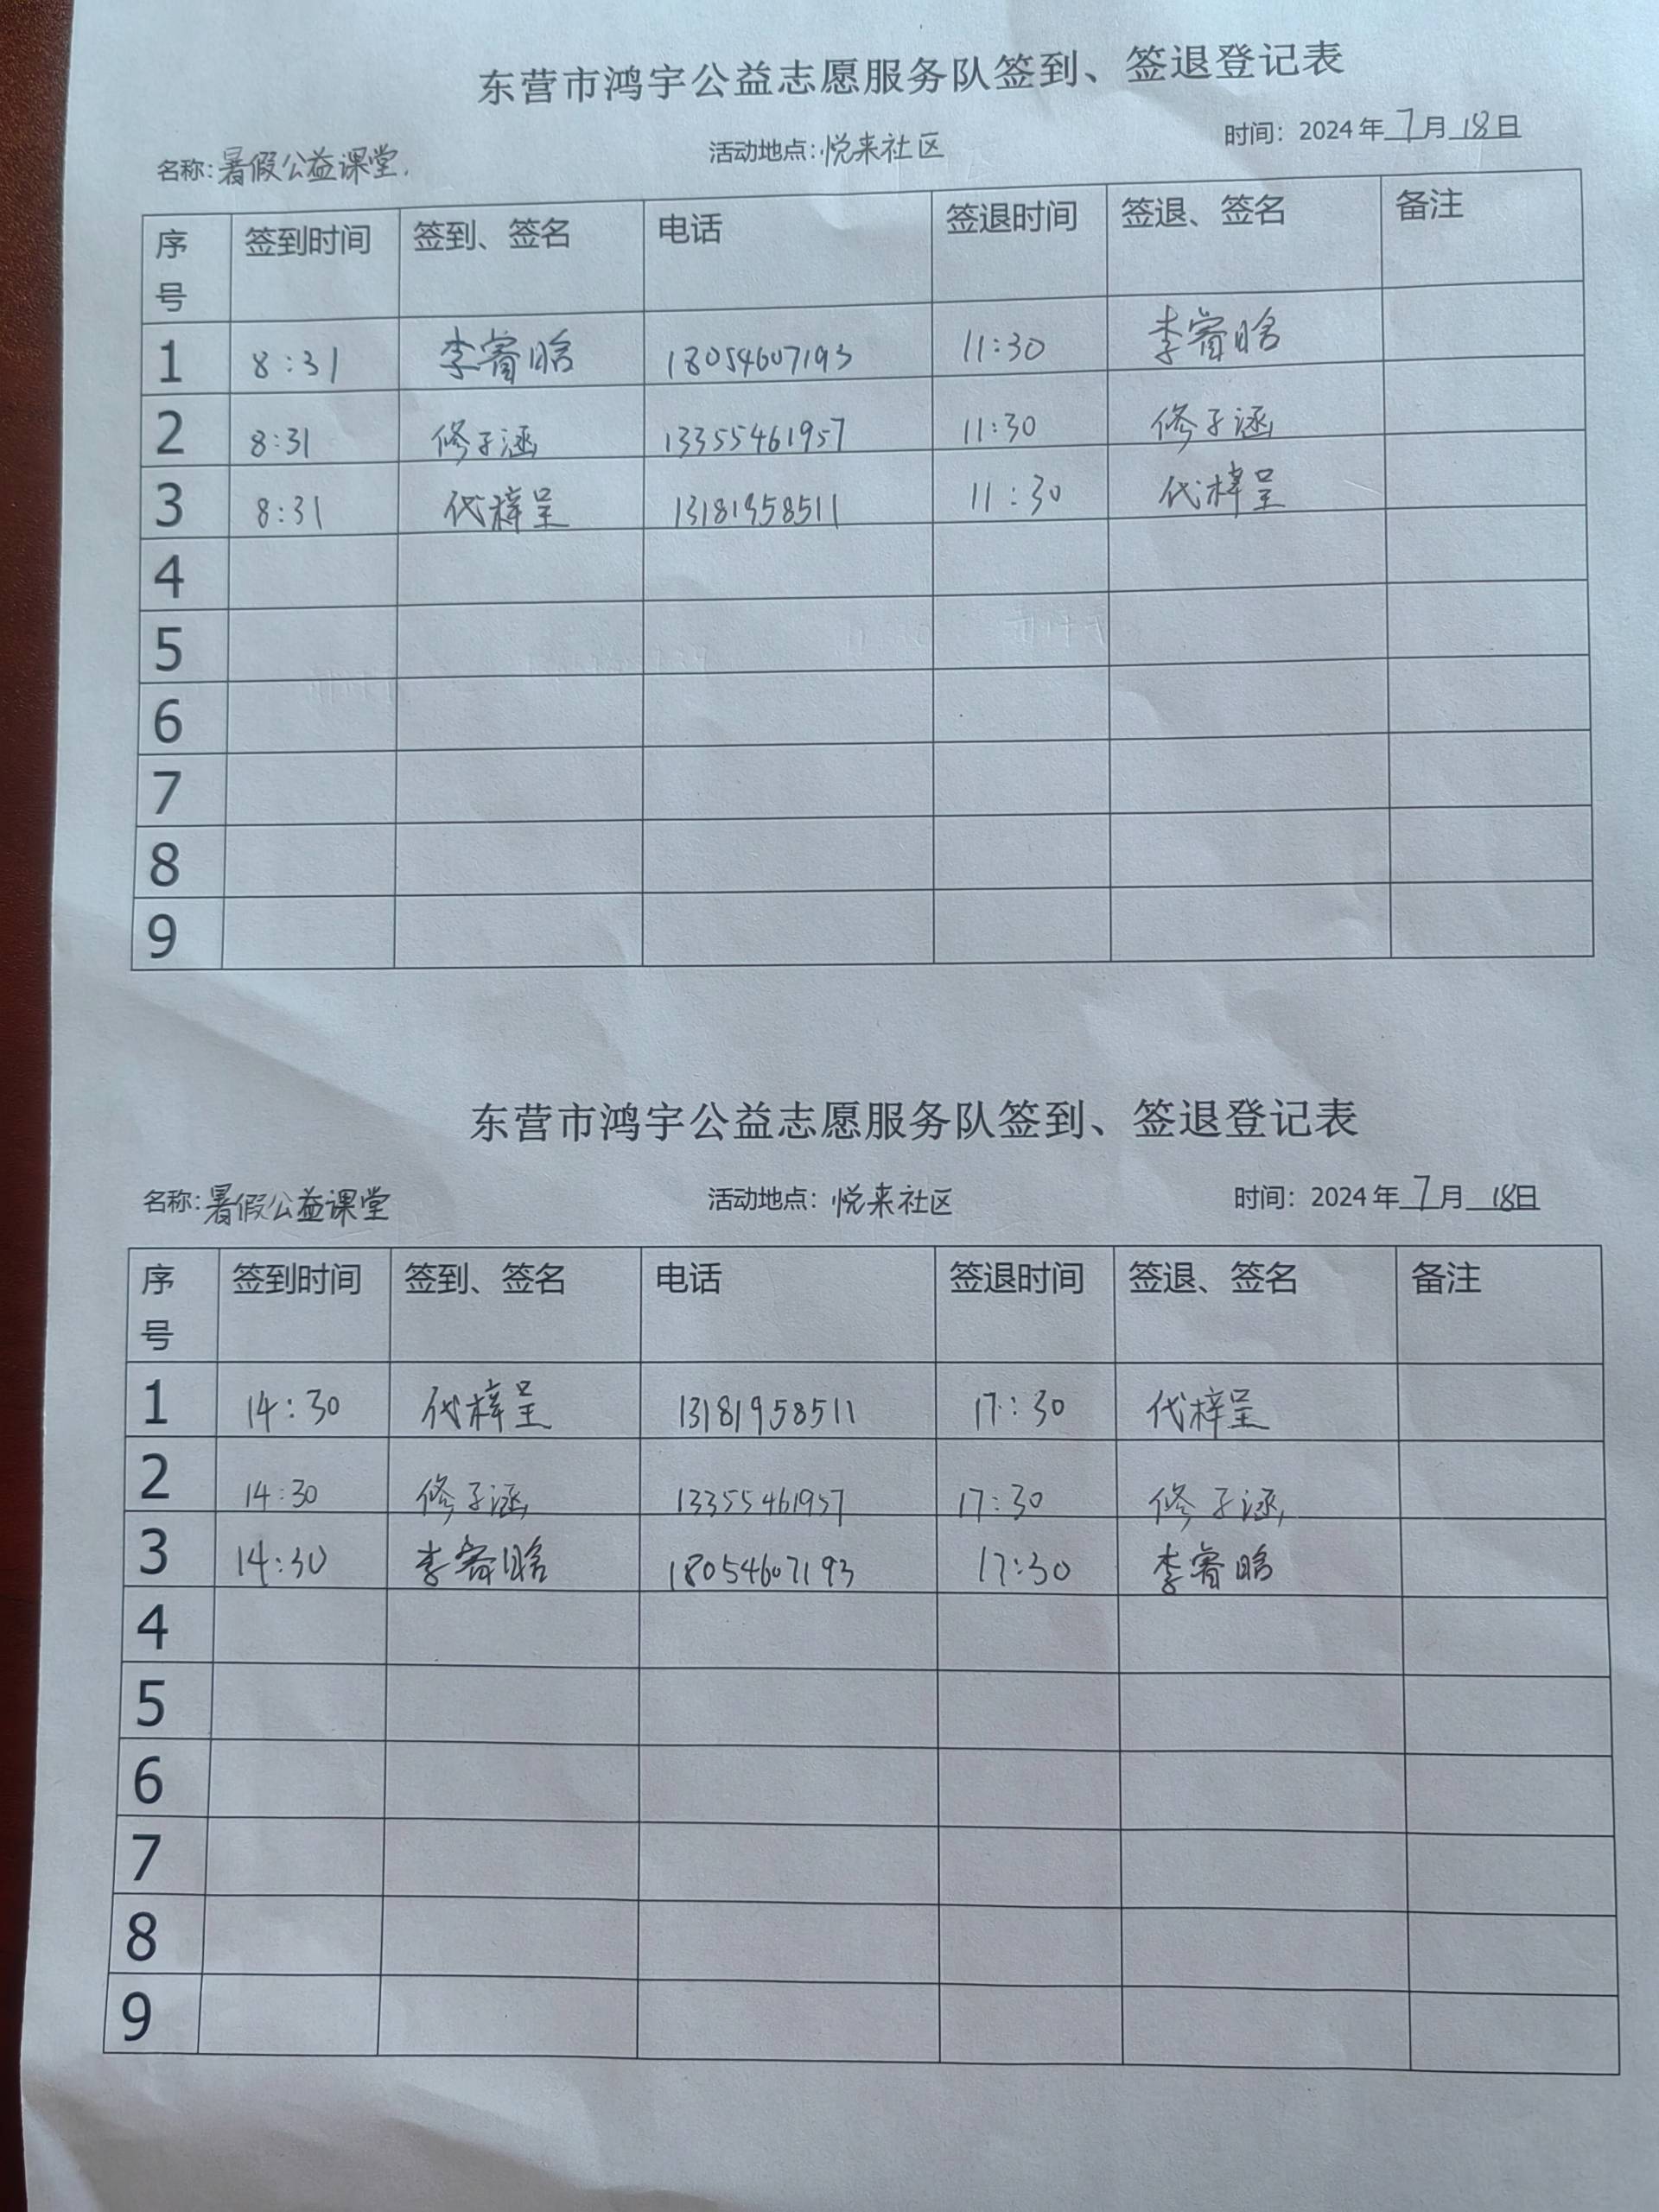 东营市鸿宇公益志愿服务队签到、签退登记表
名称:暑假公益课堂. 活动地点:悦来社区 时间:2024年7月18日
序号 签到时间 签到、签名 电话 签退时间 签退、签名 备注
1 8:31 李睿晗 18054607193 11:30 李睿晗
2 8:31 修子涵 13355461957 11:30 修子涵
3 8:31 代梓呈 13181958511 11:30 代梓呈
4
5
6
7
8
9
东营市鸿宇公益志愿服务队签到、签退登记表
名称:暑假公益课堂 活动地点:悦来社区 时间:2024年7月18日
序号 签到时间 签到、签名 电话 签退时间 签退、签名 备注
1 14:30 代梓呈 13181958511 17:30 代梓呈
2 14:30 修子涵 13355461957 17:30 修子涵
3 14:30 李睿晗 18054607193 17:30 李睿晗
4
5
6
7
8
9